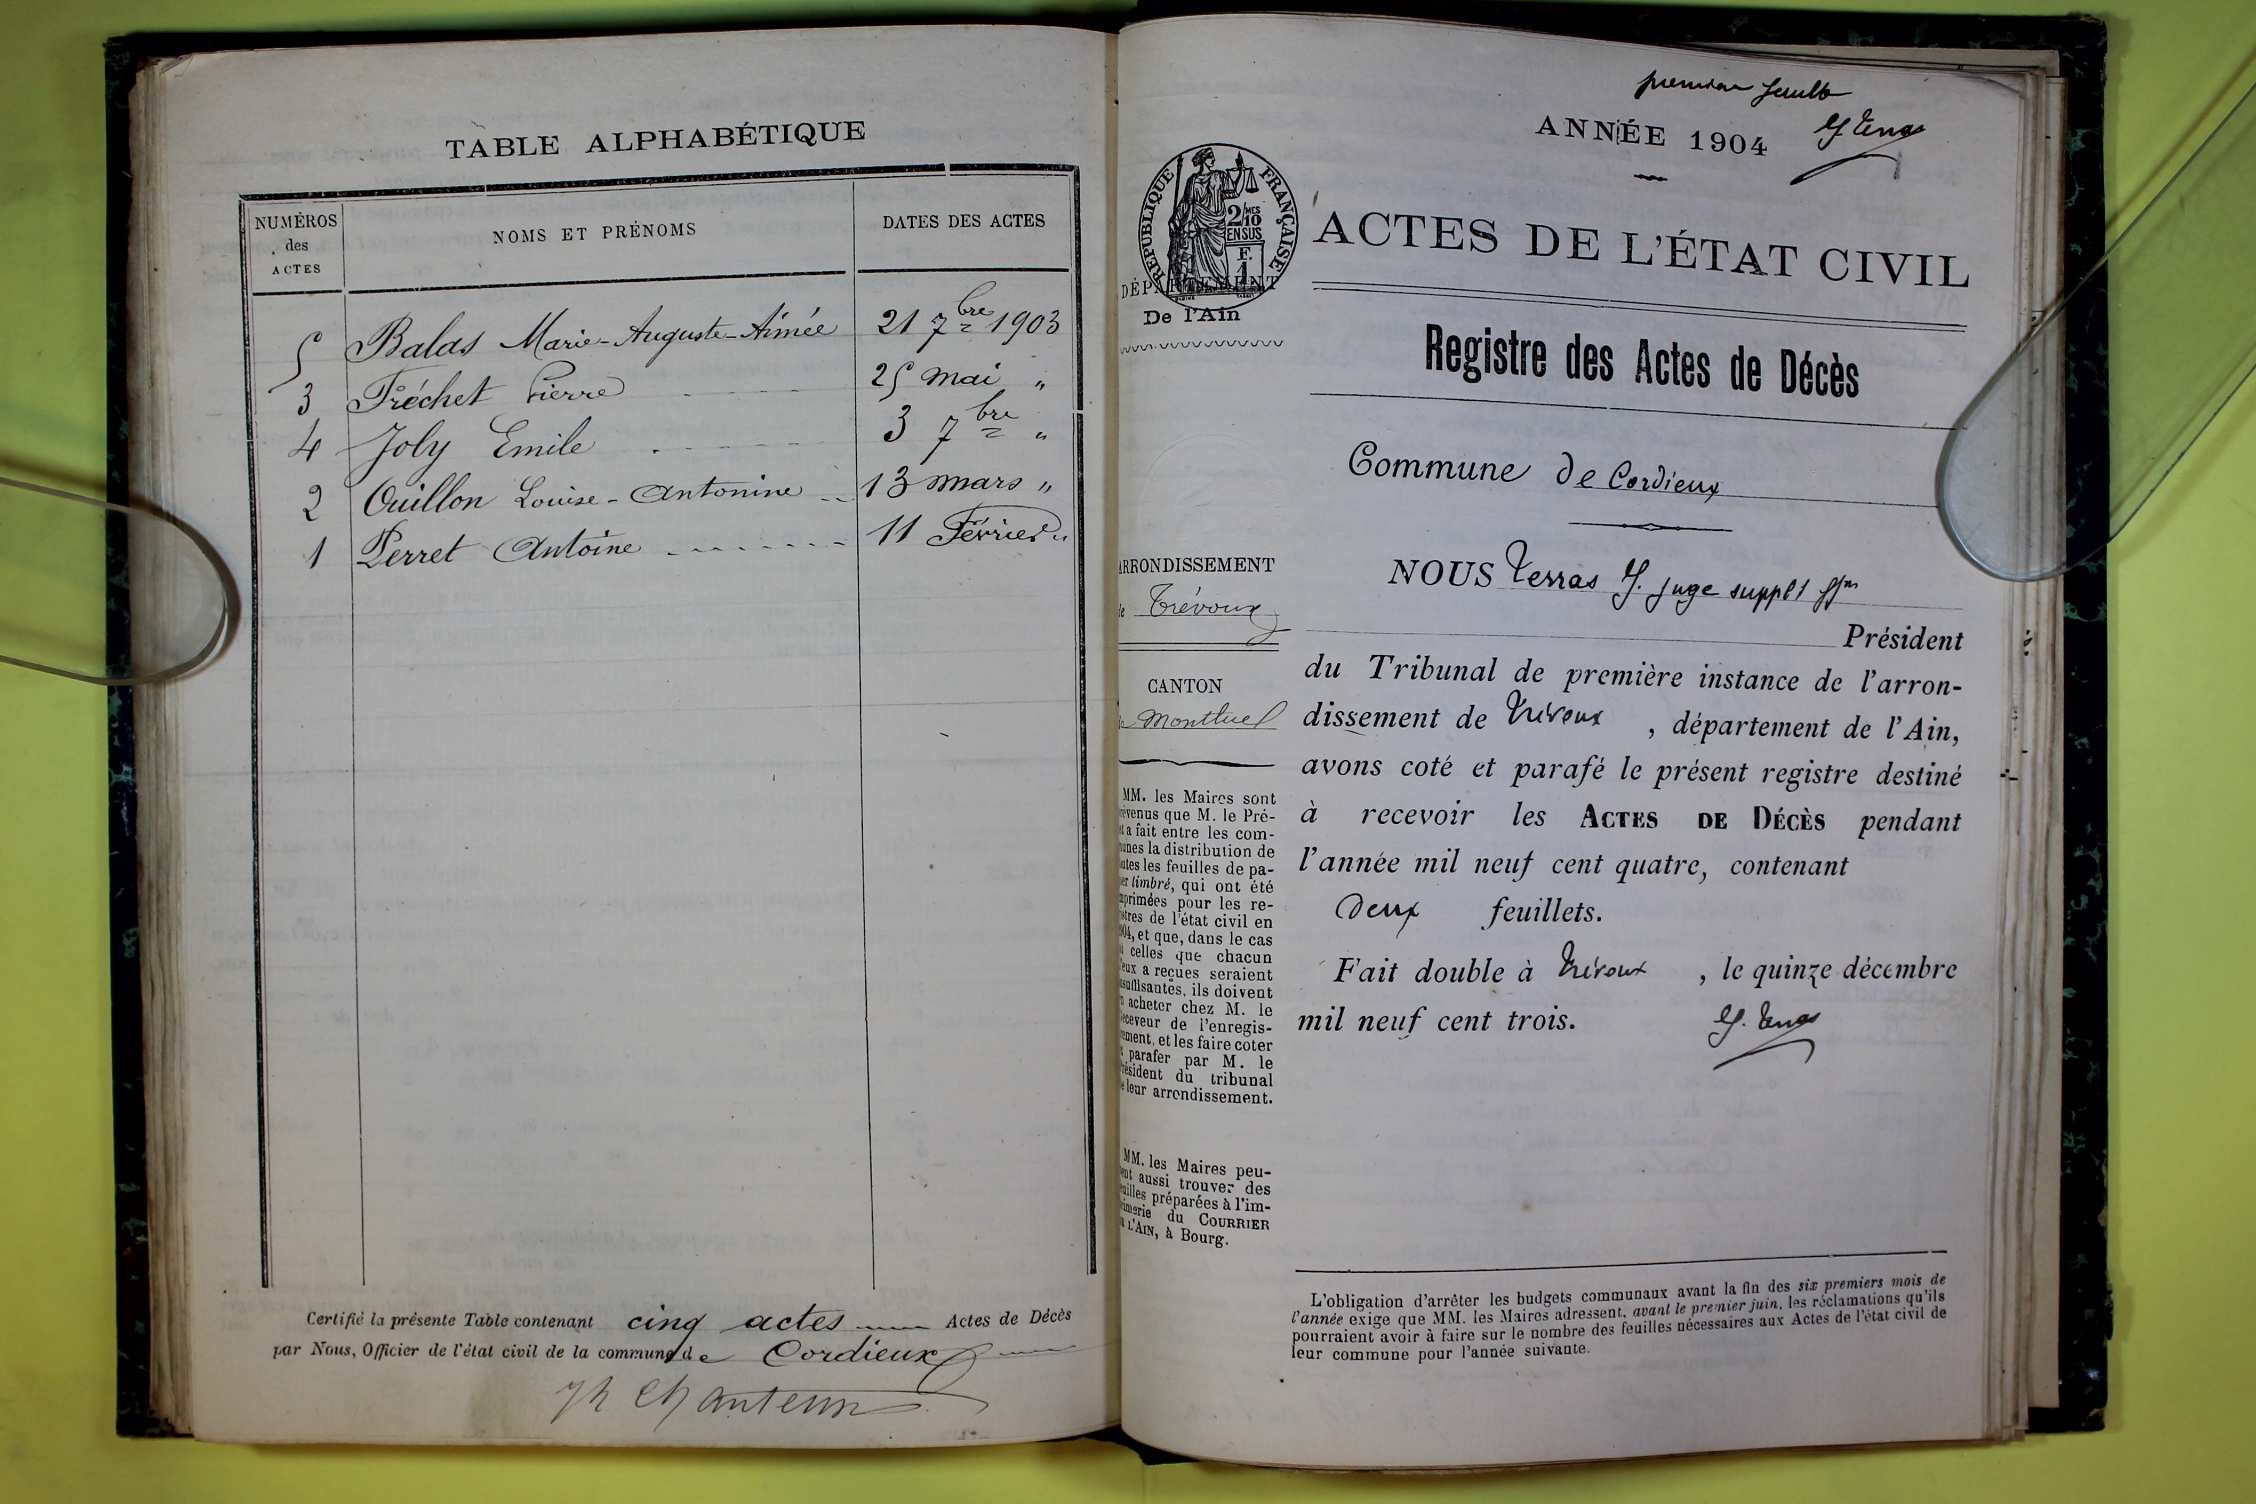 TABLE ALPHABÉTIQUE
NUMÉROS
des
ACTES
NOMS ET PRÉNOMS
DATES DES ACTES
5 Balas Marie-Auguste-Aimée 21 7bre 1903
3 Fréchet Pierre 25 mai "
4 Joly Emile 3 7bre "
2 Ouillon Louise-Antonine 13 mars "
1 Perret Antoine 11 Février "
Certifié la présente Table contenant cinq actes Actes de Décès
par Nous, Officier de l'état civil de la commune de Cordieux
premier
ANNÉE 1904
RÉPUBLIQUE FRANÇAISE
2/10 MES
EN SUS
F.
1
DÉPARTEMENT
De l'Ain
ACTES DE L'ÉTAT CIVIL
Registre des Actes de Décès
Commune de Cordieux
ARRONDISSEMENT
de Trévoux
CANTON
de Montluel
MM. les Maires sont
prévenus que M. le Pré-
fet a fait entre les com-
munes la distribution de
toutes les feuilles de pa-
pier timbré, qui ont été
imprimées pour les re-
gistres de l'état civil en
1904, et que, dans le cas
où celles que chacun
d'eux a reçues seraient
insuffisantes, ils doivent
en acheter chez M. le
Receveur de l'enregis-
trement, et les faire coter
et parafer par M. le
Président du tribunal
de leur arrondissement.
MM. les Maires peu-
vent aussi trouver des
feuilles préparées à l'im-
primerie du COURRIER
DE L'AIN, à Bourg.
NOUS Terras J. juge suppl
Président
du Tribunal de première instance de l'arron-
dissement de Trévoux, département de l'Ain,
avons coté et parafé le présent registre destiné
à recevoir les ACTES DE DÉCÈS pendant
l'année mil neuf cent quatre, contenant
Deux feuillets.
Fait double à Trévoux, le quinze décembre
mil neuf cent trois.
L'obligation d'arrêter les budgets communaux avant la fin des six premiers mois de
l'année exige que MM. les Maires adressent, avant le premier juin, les réclamations qu'ils
pourraient avoir à faire sur le nombre des feuilles nécessaires aux Actes de l'état civil de
leur commune pour l'année suivante.